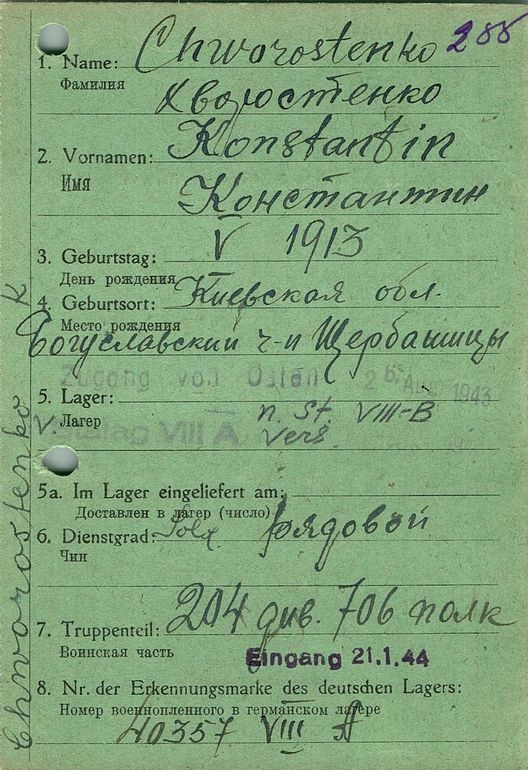 1. Name: Chworostenko 255
Фамилия Хворостенко
2. Vornamen: Konstantin
Имя Константин
3. Geburtstag: V 1913
День рождения
4. Geburtsort: Киевская обл.
Место рождения
Богуславский
Zugang von Osten 2 Aug. 1943
5. Lager: n. St. VIII-B
Лагер vers.
Stalag VIII A
5a. Im Lager eingeliefert am:
Доставлен в лагер (число)
6. Dienstgrad: Sold рядовой
Чин
7. Truppenteil: 204 див. 706 полк
Воинская часть
Eingang 21.1.44
8. Nr. der Erkennungsmarke des deutschen Lagers:
Номер военнопленного в германском лагере
40357 VIII A
Chworostenko K